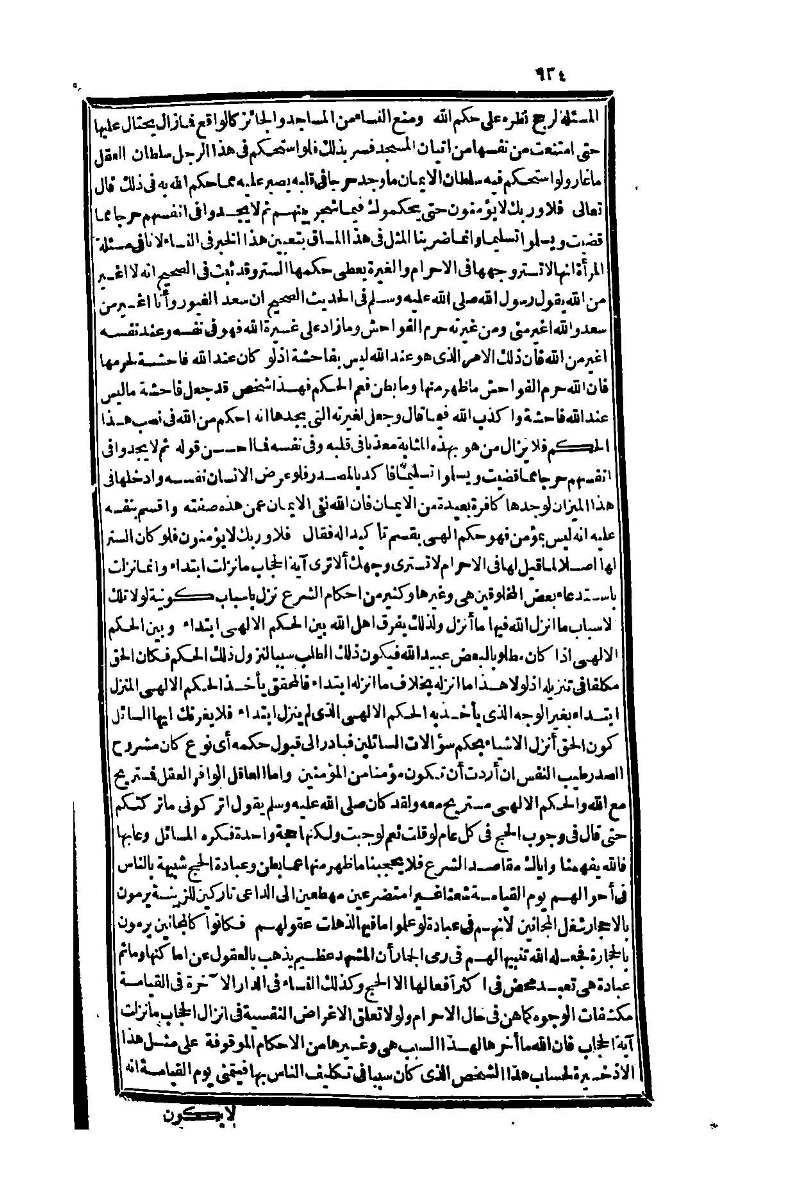 ٩٣٤
المسئلة لرجح نظره على حكم الله ومنع النساء من المساجد والجائز كالواقع فمازال يحتال عليها
حتى امتنعت من نفسها من اتيان المسجد فسر بذلك فلو استحكم فى هذا الرجل سلطان العقل
ماغار ولو استحكم فيه سلطان الايمان ماوجد حرجا فى قلبه يصبر عليه مما حكم الله به فى ذلك قال
تعالى فلا وربك لايؤمنون حتى يحكموك فيما شجر بينهم ثم لايجدوا فى انفسهم حرجا مما
قضيت ويسلموا تسليما وانما ضربنا المثل فى هذا المساق بتعيين هذا الخبر فى النساء لانا فى مسئلة
المرأة انها لاتستر وجهها فى الاحرام والغيرة يعطى حكمها الستر وقد ثبت فى الصحيح انه لا اغير
من الله يقول رسول الله صلى الله عليه وسلم فى الحديث الصحيح ان سعد الغيور وأنا اغير من
سعد والله اغير منى ومن غيرته حرم الفواحش ومازاد على غيرة الله فهو فى نفسه وعند نفسه
اغير من الله فان ذلك الامر الذى هو عند الله ليس بفاحشة اذلو كان عند الله فاحشة لحرمها
فان الله حرم الفواحش ماظهر منها ومابطن فعم الحكم فهذا شخص قد جعل فاحشة ماليس
عند الله فاحشة واكذب الله فيما قال وجعل لغيرته التى يجدها انه احكم من الله فى نصب هذا
الحكم فلا يزال من هو بهذه المثابة معذبا فى قلبه وفى نفسه فما احسن قوله ثم لايجدوا فى
انفسهم حرجا مما قضيت ويسلموا تسليما فاكد بالمصدر فلو عرض الانسان نفسه وادخلها فى
هذا الميزان لوجدها كافرة بعيدة من الايمان فان الله نفى الايمان عمن هذه صفته واقسم بنفسه
عليه انه ليس بمؤمن فهو حكم الهى بقسم تاكيدا له فقال فلا وربك لايؤمنون فلو كان الستر
لها اصلا لما قيل لها فى الاحرام لاتسترى وجهك ألاترى آية الحجاب مانزلت ابتداء وانما نزلت
باستدعاء بعض المخلوقين هى وغيرها وكثير من احكام الشرع نزل باسباب كونية لولا تلك
لاسباب ما انزل الله فيها ما أنزل ولذلك يفرق اهل الله بين الحكم الالهى ابتداء وبين الحكم
الالهى اذا كان مطلوبا لبعض عبيد الله فيكون ذلك الطلب سببا لنزول ذلك الحكم فكان الحق
مكلفا فى تنزيله اذلولا هذا ما انزله بخلاف ما انزله ابتداء فالمحقق يأخذ الحكم الالهى المنزل
ابتداء بغير الوجه الذى يأخذ به الحكم الالهى الذى لم ينزل ابتداء فلا يغرنك ايها السائل
كون الحق أنزل الاشياء بحكم سؤالات السائلين فبادر الى قبول حكمه أى نوع كان مشروح
الصدر طيب النفس ان أردت أن تكون مؤمنا من المؤمنين واما العاقل الوافر العقل فستريح
مع الله والحكم الالهى مستريح معه ولقد كان صلى الله عليه وسلم يقول اتركونى ماتركتكم
حتى قال فى وجوب الحج فى كل عام لو قلت نعم لوجبت ولكنها حجة واحدة فكره المسائل وعابها
فالله يفهمنا واياك مقاصد الشرع فلا يحجبنا ماظهر منها عما بطن وعبادة الحج شبيهة بالناس
فى أحوالهم يوم القيامة شعثا غبرا متضرعين مهطعين الى الداعى تاركين للزينة يرمون
بالاحجار شغل المجانين لانهم فى عبادة لو علموا مافيها لذهلت عقولهم فكانوا كالمجانين يرمون
بالحجارة فجعله الله تنبيها لهم فى رمى الجمار أن المشهد عظيم يذهب بالعقول عن اماكنها وماثم
عبادة هى تعبد محض فى اكثر أفعالها الا الحج وكذلك النساء فى الدار الاخرة فى القيامة
مكشفات الوجوه كماهن فى حال الاحرام ولولا تعلق الاغراض النفسية فى انزال الحجاب مانزلت
آية الحجاب فان الله ما أخرها لهذا السبب هى وغيرها من الاحكام الموقوفة على مثل هذا
الا ذخيرة لحساب هذا الشخص الذى كان سببا فى تكليف الناس بها فيتمنى يوم القيامة انه
لايكون